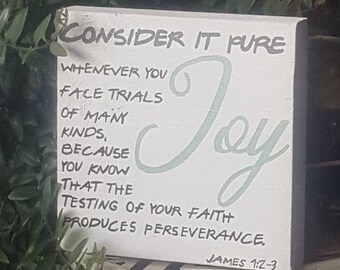 CONSIDER IT PURE
Joy
WHENEVER YOU
FACE TRIALS
OF MANY
KINDS,
BECAUSE
YOU KNOW
THAT THE
TESTING OF YOUR FAITH
PRODUCES PERSEVERANCE.
JAMES 1:2-3